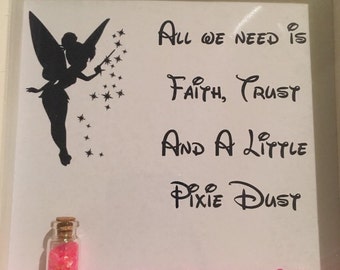 All we need is
Faith, Trust
And A Little
Pixie Dust